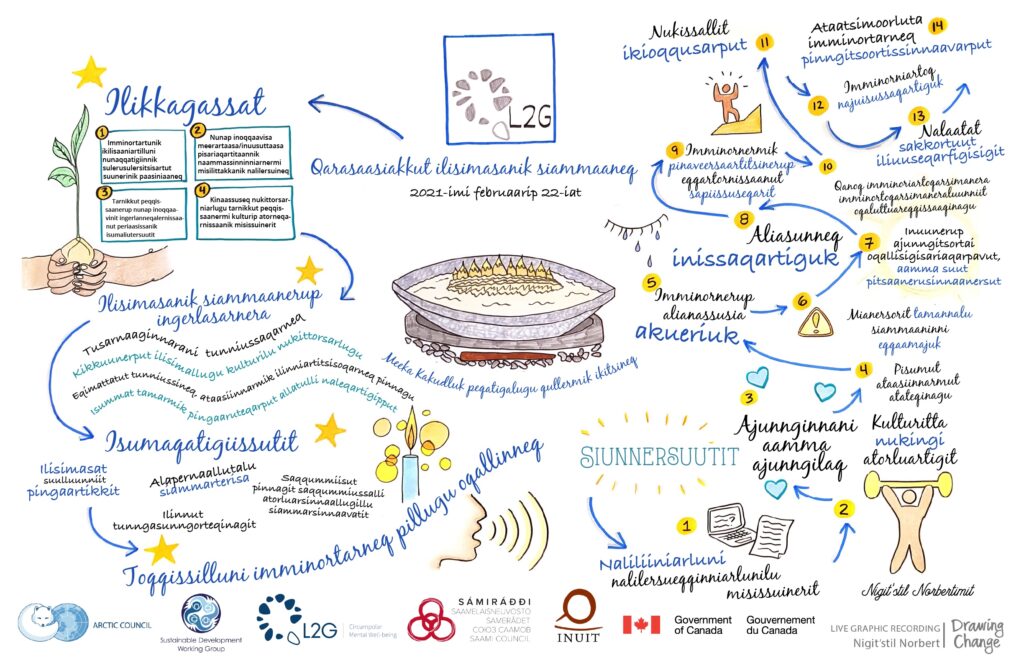 L2G
Qarasaasiakkut ilisimasanik siammaaneq
2021-imi februaarip 22-iat
Ilikkagassat
1
Imminortartunik
ikilisaaniartilluni
nunaqqatigiinnik
sulerusulersitsisartut
suunerinik paasiniaaneq
2
Nunap inoqqaavisa
meerartaasa/inuusuttaasa
pisariaqartitaannik
naammassinninniarnermi
misilittakkanik nalilersuineq
3
Tarnikkut peqqis-
saanerup nunap inoqqaa-
vinit ingerlanneqalernissaa-
nut periaasissanik
isumaliutersuutit
4
Kinaassuseq nukittorsar-
niarlugu tarnikkut peqqis-
saanermi kulturip atorneqa-
rnissaanik misissuinerit
Ilisimasanik siammaanerup
ingerlasarnera
Tusarnaaginnarani tunniussaqarneq
Kikkuunerput ilisimallugu kulturilu nukittorsarlugu
Eqimattatut tunniussineq, ataasiinnarmik ilinniartitsisoqarneq pinnagu
Isummat tamarmik pingaaruteqarput alatulli naleqartigipput
Meeka Kakudluk peqatigalugu qullermik ikitsineq
Isumaqatigiissutit
Ilisimasat
suulluunniit
pingaartikkit
Alapernaallutalu
siammarterisa
Saqqummiisut
pinnagit saqqummiussalli
atorluarsinnaallugillu
siammarsinnaavatit
Ilinnut
tunngasunngorteqinagit
Toqqissilluni imminortarneq pillugu oqallinneq
SIUNNERSUUTIT
1
Naliliiniarluni
nalilersueqqinniarlunilu
misissuinerit
2
Kulturitta
nukingi
atorluartigit
3
Ajunnginnani
aamma
ajunngilaq
4
Pisumut
ataasiinnarmut
atateqinagu
5
Imminornerup
alianassusia
akueriuk
6
Mianersorit tamannalu
siammaaninni
eqqaamajuk
7
Inuunerup
ajunngitsortai
oqallisigisariaqarpavut,
aamma suut
pitsaanerusinnaanersut
8
Aliasunneq
inissaqartiguk
9
Imminornermik
pinaveersaartitsinerup
eqqartornissaanut
sapiissuseqarit
10
Qanoq imminoriartoqarsimanera
imminortoqarsimaneraluunniit
oqaluttuareqqissaaginagu
11
Nukissallit
ikioqqusarput
12
Imminorniartoq
najuisussaqartiguk
13
Nalaatat
sakkortuut
iliuuseqarfigisigit
14
Ataatsimoorluta
imminortarneq
pinngitsoortissinnaavarput
Nigit'stil Norbertimit
ARCTIC COUNCIL
Sustainable Development
Working Group
L2G
Circumpolar
Mental Well-being
SÁMIRÁĐĐI
SAAMELAISNEUVOSTO
SAMERÅDET
СОЮЗ СААМОВ
SAAMI COUNCIL
INUIT
Government
of Canada
Gouvernement
du Canada
LIVE GRAPHIC RECORDING
Nigit'stil Norbert
Drawing
Change